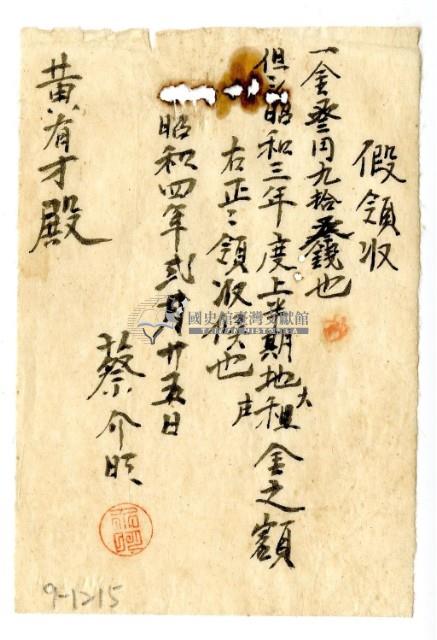 假領収
一金叁円九拾叁錢也
但シ昭和三年度上半期地租金之額
大
庄
右正ニ領収候也
昭和四年弍月廿五日
蔡介
黃有才殿
國史館臺灣文獻館
TAIWAN HISTORICA
9-1215